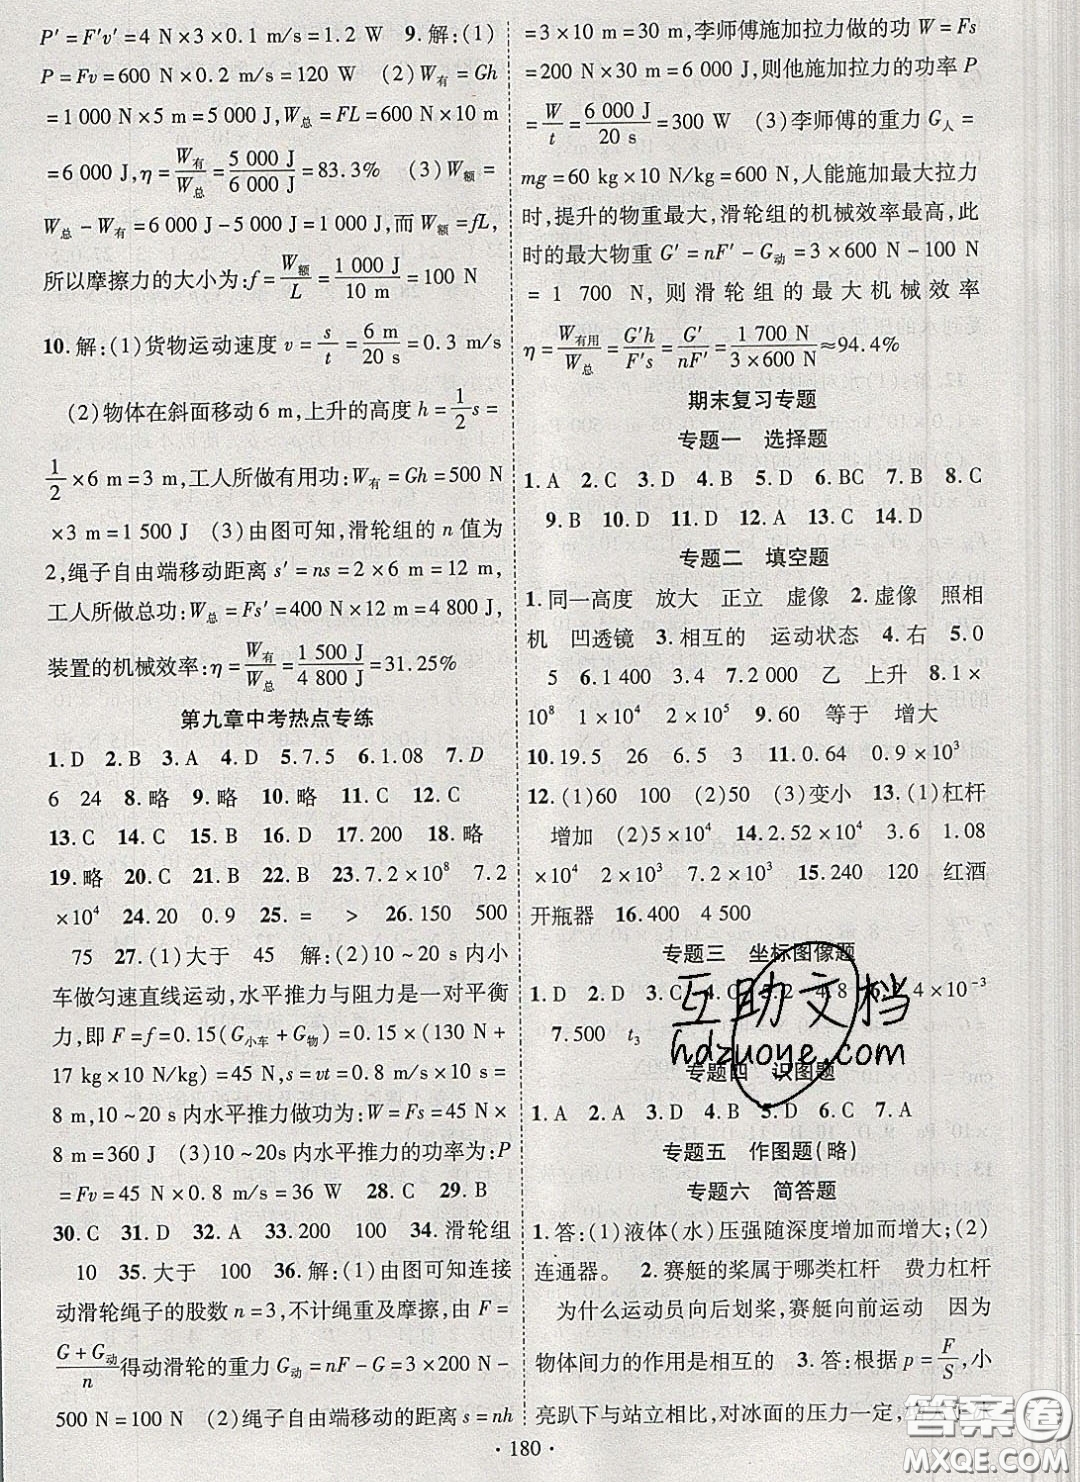 P′=F′v′=4 N×3×0.1 m/s=1.2 W 9.解:(1)
P=Fv=600 N×0.2 m/s=120 W (2)W有=Gh
=1 000 N×5 m=5 000 J,W总=FL=600 N×10 m
=6 000 J,η=W有/W总=5 000 J/6 000 J=83.3% (3)W额=
W总-W有=6 000 J-5 000 J=1 000 J,而W额=fL,
所以摩擦力的大小为:f=W额/L=1 000 J/10 m=100 N
10.解:(1)货物运动速度v=s/t=6 m/20 s=0.3 m/s
(2)物体在斜面移动6 m,上升的高度h=1/2 s=
1/2×6 m=3 m,工人所做有用功:W有=Gh=500 N
×3 m=1 500 J (3)由图可知,滑轮组的n值为
2,绳子自由端移动距离s′=ns=2×6 m=12 m,
工人所做总功:W总=Fs′=400 N×12 m=4 800 J,
装置的机械效率:η=W有/W总=1 500 J/4 800 J=31.25%
第九章中考热点专练
1.D 2.B 3.A 4.D 5.7.5 6.1.08 7.D
6 24 8.略 9.略 10.略 11.C 12.C
13.C 14.C 15.B 16.D 17.200 18.略
19.略 20.C 21.B 22.B 23.7.2×10⁸ 7.2
×10⁴ 24.20 0.9 25.= > 26.150 500
75 27.(1)大于 45 解:(2)10~20 s内小
车做匀速直线运动,水平推力与阻力是一对平衡
力,即F=f=0.15(G小车+G物)=0.15×(130 N+
17 kg×10 N/kg)=45 N,s=vt=0.8 m/s×10 s=
8 m,10~20 s内水平推力做功为:W=Fs=45 N×
8 m=360 J (3)10~20s内水平推力的功率为:P
=Fv=45 N×0.8 m/s=36 W 28.C 29.B
30.C 31.A 32.A 33.200 100 34.滑轮组
10 35.大于 100 36.解:(1)由图可知连接
动滑轮绳子的股数n=3,不计绳重及摩擦,由F=
G+G动/n得动滑轮的重力G动=nF-G=3×200 N-
500 N=100 N (2)绳子自由端移动的距离s=nh
=3×10 m=30 m,李师傅施加拉力做的功W=Fs
=200 N×30 m=6 000 J,则他施加拉力的功率P
=W/t=6 000 J/20 s=300 W (3)李师傅的重力G人=
mg=60 kg×10 N/kg=600 N,人能施加最大拉力
时,提升的物重最大,滑轮组的机械效率最高,此
时的最大物重G′=nF′-G动=3×600 N-100 N
=1 700 N,则滑轮组的最大机械效率
η=W有用/W总=G′h/F′s=G′/nF′=1 700 N/3×600 N≈94.4%
期末复习专题
专题一 选择题
1.A 2.C 3.D 4.B 5.D 6.BC 7.B 8.C
9.B 10.D 11.D 12.A 13.C 14.D
专题二 填空题
1.同一高度 放大 正立 虚像 2.虚像 照相
机 凹透镜 3.相互的 运动状态 4.右 5.0
5 6.1 400 3.5 7.2 000 乙 上升 8.1×
10⁸ 1×10⁴ 2×10⁴ 9.60 等于 增大
10.19.5 26 6.5 3 11.0.64 0.9×10³
12.(1)60 100 (2)50 (3)变小 13.(1)杠杆
增加 (2)5×10⁴ 14.2.52×10⁴ 3.6 1.08
×10⁴ 2×10³ 7.2×10³ 15.240 120 红酒
开瓶器 16.400 4 500
专题三 坐标图像题
1.D 2.D 3.C 4.C 2 4.8 4×10⁻³
7.500 t₃
专题四 识图题
1.A 2.A 3.D 4.B 5.D 6.C 7.A
专题五 作图题(略)
专题六 简答题
1.答:(1)液体(水)压强随深度增加而增大;(2)
连通器。 2.赛艇的桨属于哪类杠杆 费力杠杆
为什么运动员向后划桨,赛艇向前运动 因为
物体间力的作用是相互的 3.答:根据p=F/S,小
亮趴下与站立相比,对冰面的压力一定,
·180·
互助文档
hdzuoye.com
答案圈
MXQE.COM